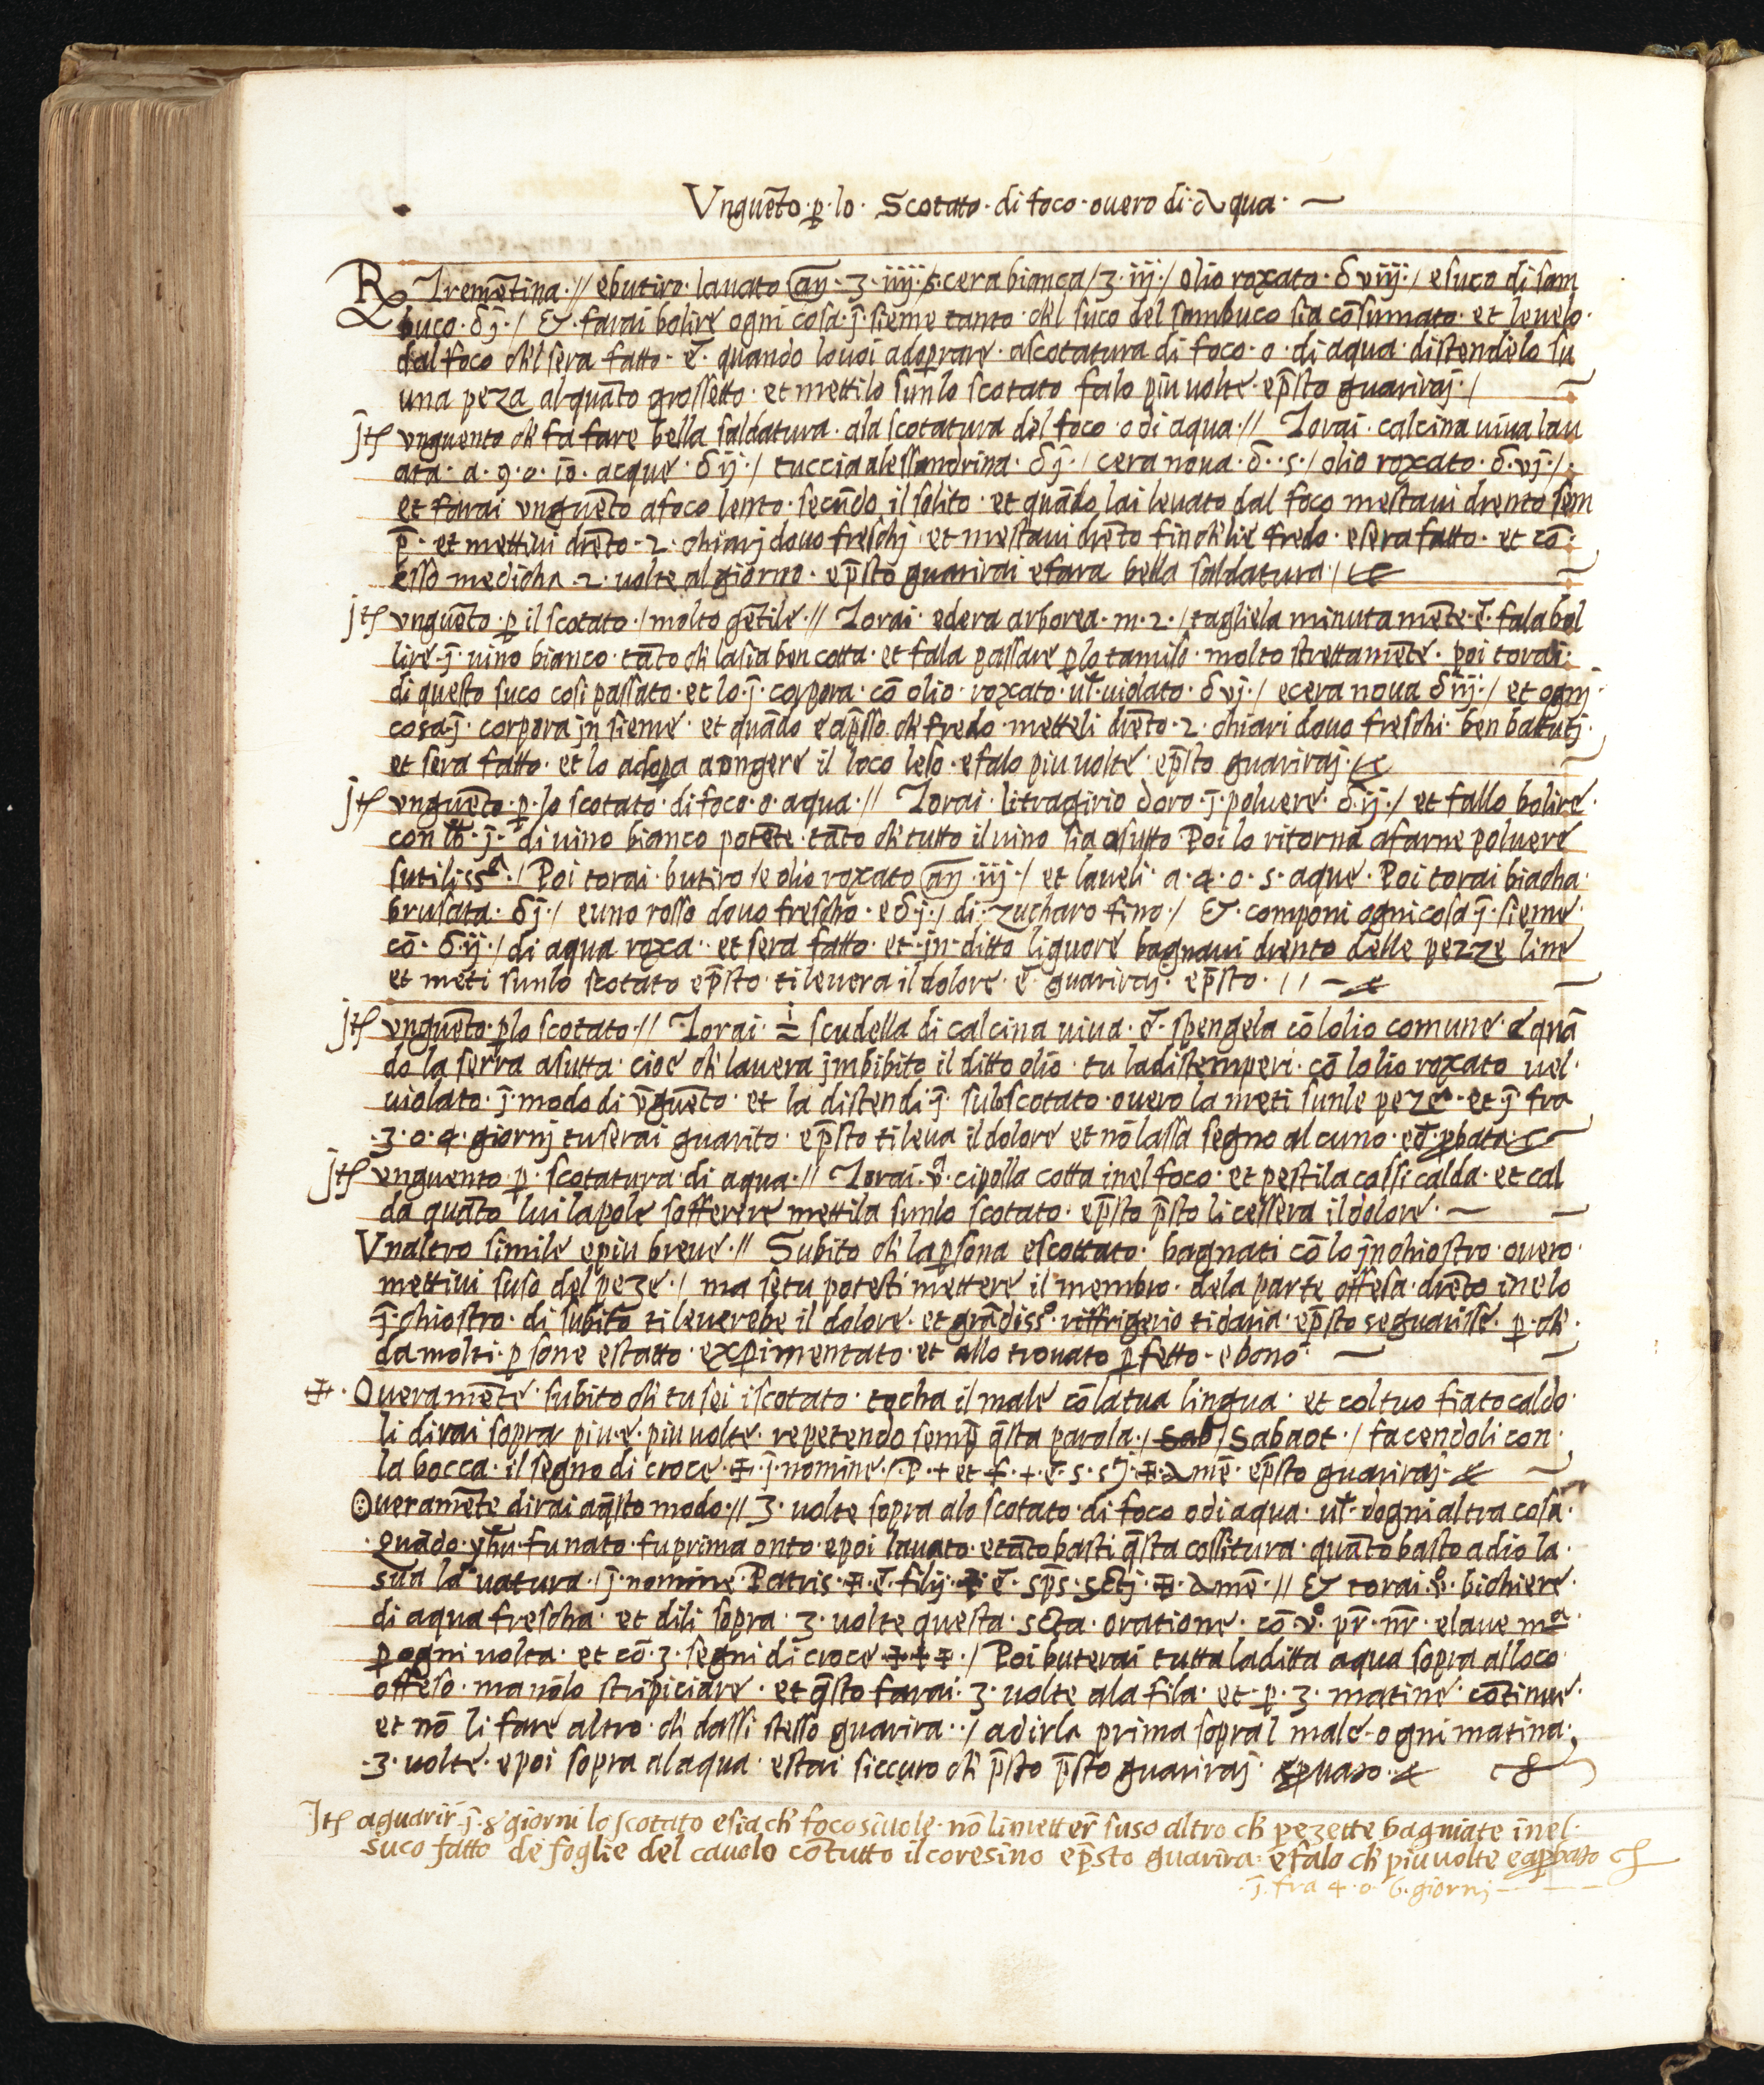 Vnguēto · ꝑ · lo · Scotato · di foco · ouero di · Aqua · —
℞ Tremētina · // ebutiro · lauato añ · ʒ · iiij · s · cera bianca / ʒ · iij · / olio roxato · δ viij · / e suco di sam
buco · δ j̄ · / Et · farai bolire ogni cosa · j̄ · sieme tanto · ch'l suco del sambuco sia cōsumato · et leuelo ·
dal foco ch'l sera fatto · ēt · quando lo uoi adoprare · ascotatura di foco · o · di aqua · distendelo su
una peza alquāto grossetto · et mettilo sunlo scotato falo piu uolte · ep̄sto guariraj · /
jtē vnguento ch' fa fare bella saldatura · ala scotatura del foco · o di aqua · // Torai · calcina uiua lau
ata · a · 9 · o · 10 · acque · δ ij · / tuccia alessandrina · δ j̄ · / cera noua · δ · s · / olio roxato · δ · vj · / ·
et farai vnguēto afoco lento · secūdo il solito · et quādo lai leuato dal foco mestaui drento sem
p̄ · et mettiui drēto · 2 · chiarj douo freschj · et mestaui drēto fin ch'lie fredo · e sera fatto · et cō ·
esso medicha · 2 · uolte al giorno · ep̄sto guarirai e fara bella saldatura · /
jtē vnguēto · ꝑ il scotato · / molto gētile · // Torai · edera arborea · m · 2 · / tagliela minutamēte · ēt · fala bol
lire · j̄ · uino bianco · tāto ch' la sia ben cotta · et fala passare ꝑ lo tamiso · molto strettamēte · poi torai ·
di questo suco cosi passato · et lo · j̄ · corpora · cō olio · roxato · ul̄ · uiolato · δ vj · / e cera noua δ iij · / et ognj ·
cosa · j̄ · corpora jn sieme · et quādo e ap̄sso ch' fredo · metteli drēto · 2 · chiari douo freschi · ben batutj ·
et sera fatto · et lo adoꝑa a ongere il loco leso · e falo piu uolte · ep̄sto guariraj ·
jtē vnguēto · ꝑ · lo scotato · di foco · o · aqua · // Torai · litragirio doro · j̄ · poluere · δ · ij · / et fallo bolire ·
con lb̄ · j · di uino bianco potēte · tāto ch' tutto il uino sia asutto Poi lo ritorna afarne poluere
sutilissa · / Poi torai · butiro / e olio roxato añ · iij · / et laueli · a · 4 · o · 5 · aque · Poi torai biacha ·
brusata · δ j · / e uno rosso douo frescho · e δ · j · / di · zucharo fino · / Et · componi ogni cosa · j̄ · sieme ·
cō · δ · ij · / di aqua roxa · et sera fatto · et · jn · ditto liquore bagnaui drento delle pezze line
et meti sunlo scotato ep̄sto · ti leuera il dolore · ēt · guariraj · ep̄sto · / / —
jtē vnguēto · ꝑ lo scotato · // Torai · ½ scudella di calcina uiua · ēt · spengela cō lolio comune · e quā
do la serra asutta · cioe ch' lauera jmbibito il ditto olio · tu la distemperi · cō lolio roxato uel ·
uiolato · j̄ · modo di v̄guēto · et la distendi · j̄ · sulscotato · ouero la meti sunle peze · et j̄ fra
· 3 · o · 4 · giornj tu serai guarito · ep̄sto ti leua il dolore et nō lassa segno alcuno · ēt · ꝓbata ·
jtē vnguento ꝑ · scotatura · di aqua · // Torai · va · cipolla cotta inel foco · et pestila cossi calda · et cal
da quāto lui la pole sofferire mettila sunlo scotato · ep̄sto p̄sto li cessera il dolore · —
Vnaltro simile e piu breue · // Subito ch' la ꝑsona e scottato · bagnati cō lo jnchiostro · ouero ·
mettiui suso del peze · / ma se tu potesti mettere il membro · dela parte offesa · drēto inelo
j̄ · chiostro · di subito ti leuerebe il dolore · et grādisso · riffrigerio ti daria · ep̄sto se guarisse · ꝑ · ch' ·
da molti · ꝑsone e statto · exꝑimentato · et allo trouato ꝑfetto · e bono · —
✠ · Oueramēte · subito ch' tu sei iscotato · tocha il male cō la tua lingua · et col tuo fiato caldo ·
li dirai sopra piu · e · piu uolte · repetendo semp̄ q̄sta parola · / Sab / Sabaot · / facendoli con ·
la bocca · il segno di croce · ✠ · j̄ · nomine · / · P · + et · f · + · ēt · s · st̄j · ✠ · Amē · ep̄sto guariraj ·
Oueramēte dirai aq̄sto modo · // 3 · uolte sopra alo scotato · di foco o di aqua · ul̄ · dogni altra cosa ·
· Quādo · yhū · fu nato · fu prima onto · e poi lauato · e tāto basti q̄sta cossitura · quāto basto a dio la ·
sua la uatura · / j̄ · nomine · Patris · ✠ · ēt · filij · ✠ · ēt · sp̄s · sctj · ✠ · Amē · // Et torai · vo · bichiere ·
di aqua frescha · et dili sopra · 3 · uolte questa · scta · oratione · cō · vo · pr̄ · nr̄ · e laue ma ·
ꝑ ogni uolta · et cō · 3 · segni di croce · ✠ · ✠ · ✠ · / Poi buterai tutta la ditta aqua sopra al loco
offeso · ma nōlo stripiciare · et q̄sto farai · 3 · uolte ala fila · et · ꝑ · 3 · matine · cōtinue ·
et nō li fare altro · ch' dassi stesso guarira · · / a dirla prima sopral male · ogni matina ·
· 3 · uolte · e poi sopra alaqua · e stai siccuro ch' p̄sto p̄sto guariraj ·
Jtē a guarir̄ · j̄ · 8 giorni lo scotato e sia ch' foco si uole · nō li metter̄ suso altro ch' pezette bagniate inel ·
suco fatto de foglie del cauolo cō tutto il coresino ep̄sto guarira · e falo ch' piu uolte e aꝑbato
· j̄ · fra 4 · o · 6 · giornj — — —